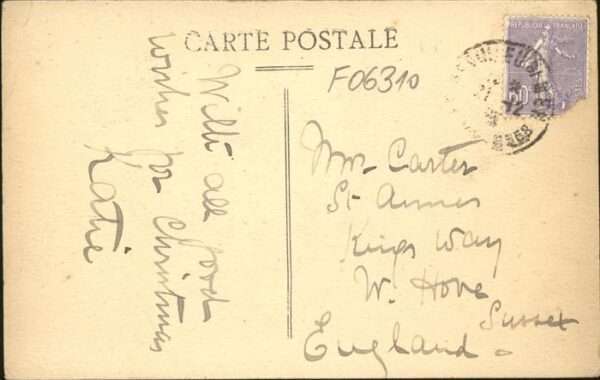 CARTE POSTALE
F06310
REPUBLIQUE FRANÇAISE
With all good
wishes for Christmas
Katie
Mrs. Carter
St Annes
Kings Way
W. Hove
Sussex
England.